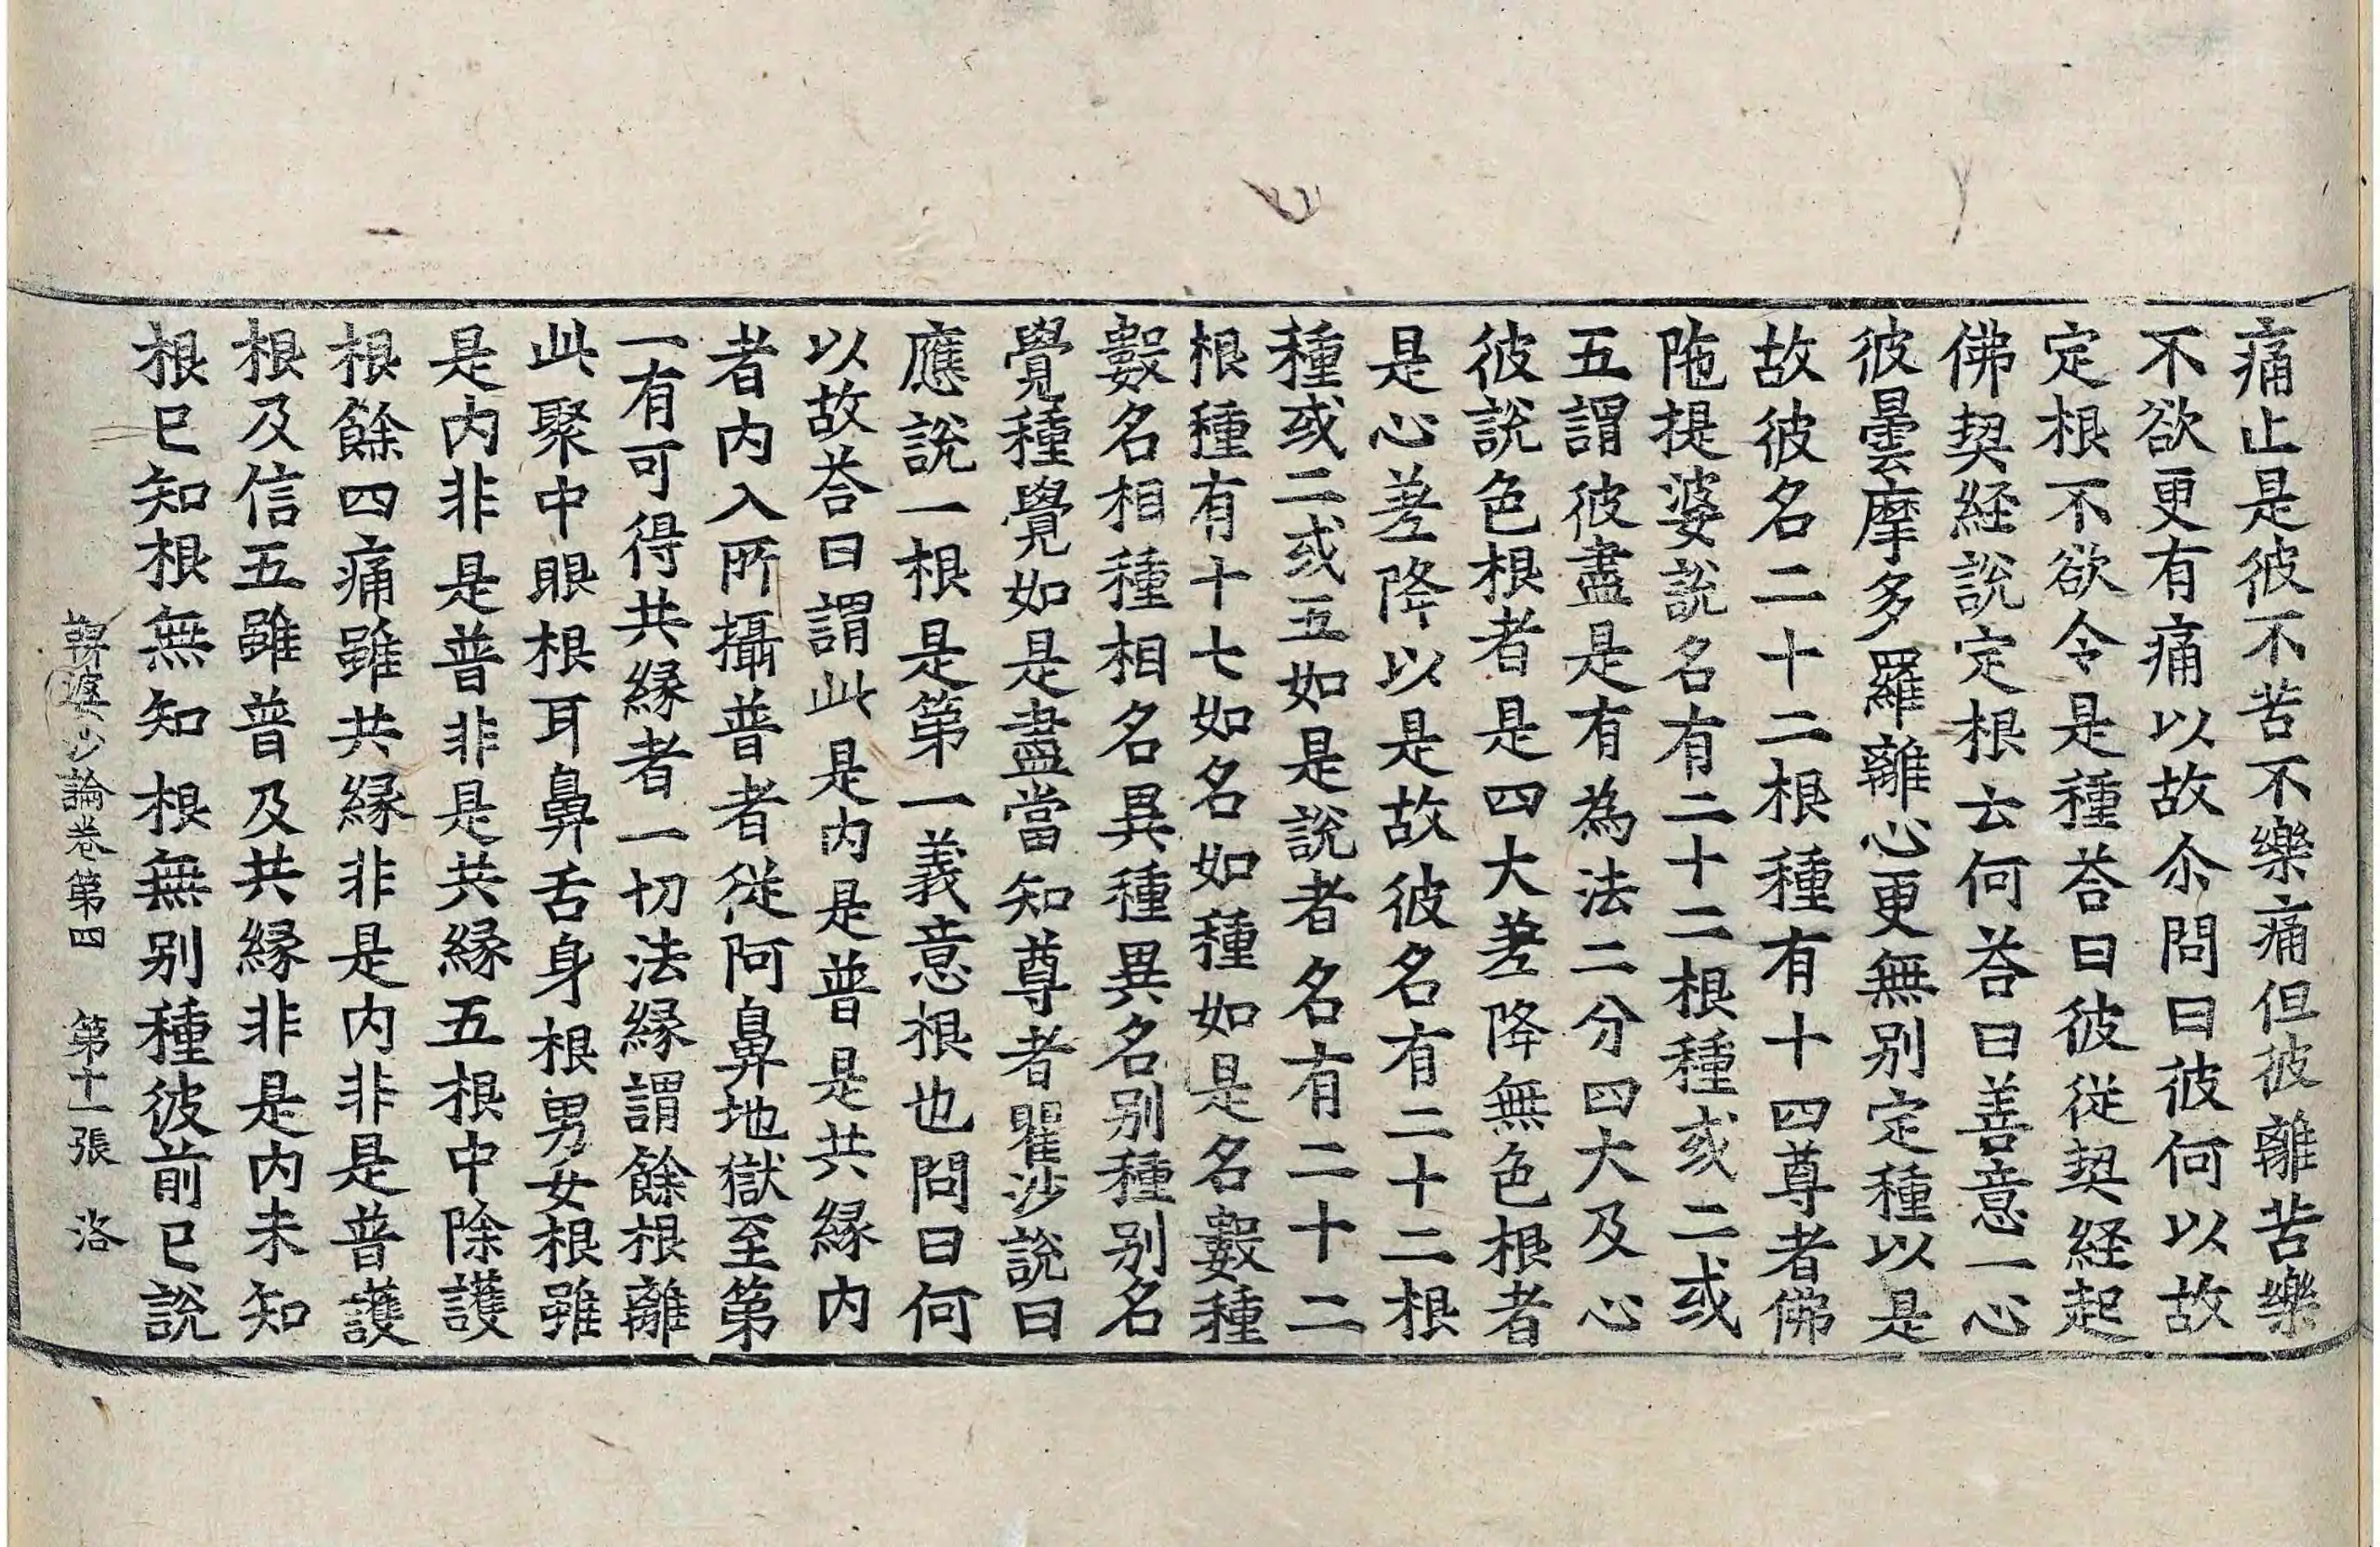 痛止是彼不苦不樂痛但彼離苦樂
不欲更有痛以故尒問曰彼何以故
定根不欲令是種荅曰彼從契経起
佛契経說定根云何荅曰善意一心
彼曇摩多羅離心更無別定種以是
故彼名二十二根種有十四尊者佛
陁提婆說名有二十二根種或二或
五謂彼盡是有為法二分四大及心
彼說色根者是四大差降無色根者
是心差降以是故彼名有二十二根
種或二或五如是說者名有二十二
根種有十七如名如種如是名數種
數名相種相名異種異名別種別名
覺種覺如是盡當知尊者瞿沙說曰
應說一根是第一義意根也問曰何
以故荅曰謂此是內是普是共縁內
者內入所攝普者從阿鼻地獄至第
一有可得共縁者一切法縁謂餘根離
此聚中眼根耳鼻舌身根男女根雖
是內非是普非是共縁五根中除護
根餘四痛雖共縁非是內非是普護
根及信五雖普及共縁非是內未知
根已知根無知根無別種彼前已說
鞞婆沙論卷第四 第十一張 洛